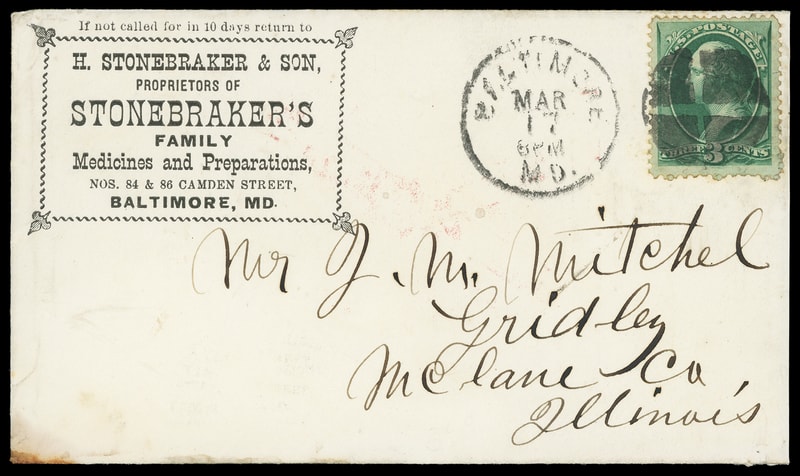 If not called for in 10 days return to
H. STONEBRAKER & SON,
PROPRIETORS OF
STONEBRAKER'S
FAMILY
Medicines and Preparations,
NOS. 84 & 86 CAMDEN STREET,
BALTIMORE, MD.
BALTIMORE
MAR
17
6PM
MD.
POSTAGE
THREE 3 CENTS
Mr J. M. Mitchel
Gridley
McLane Co,
Illinois